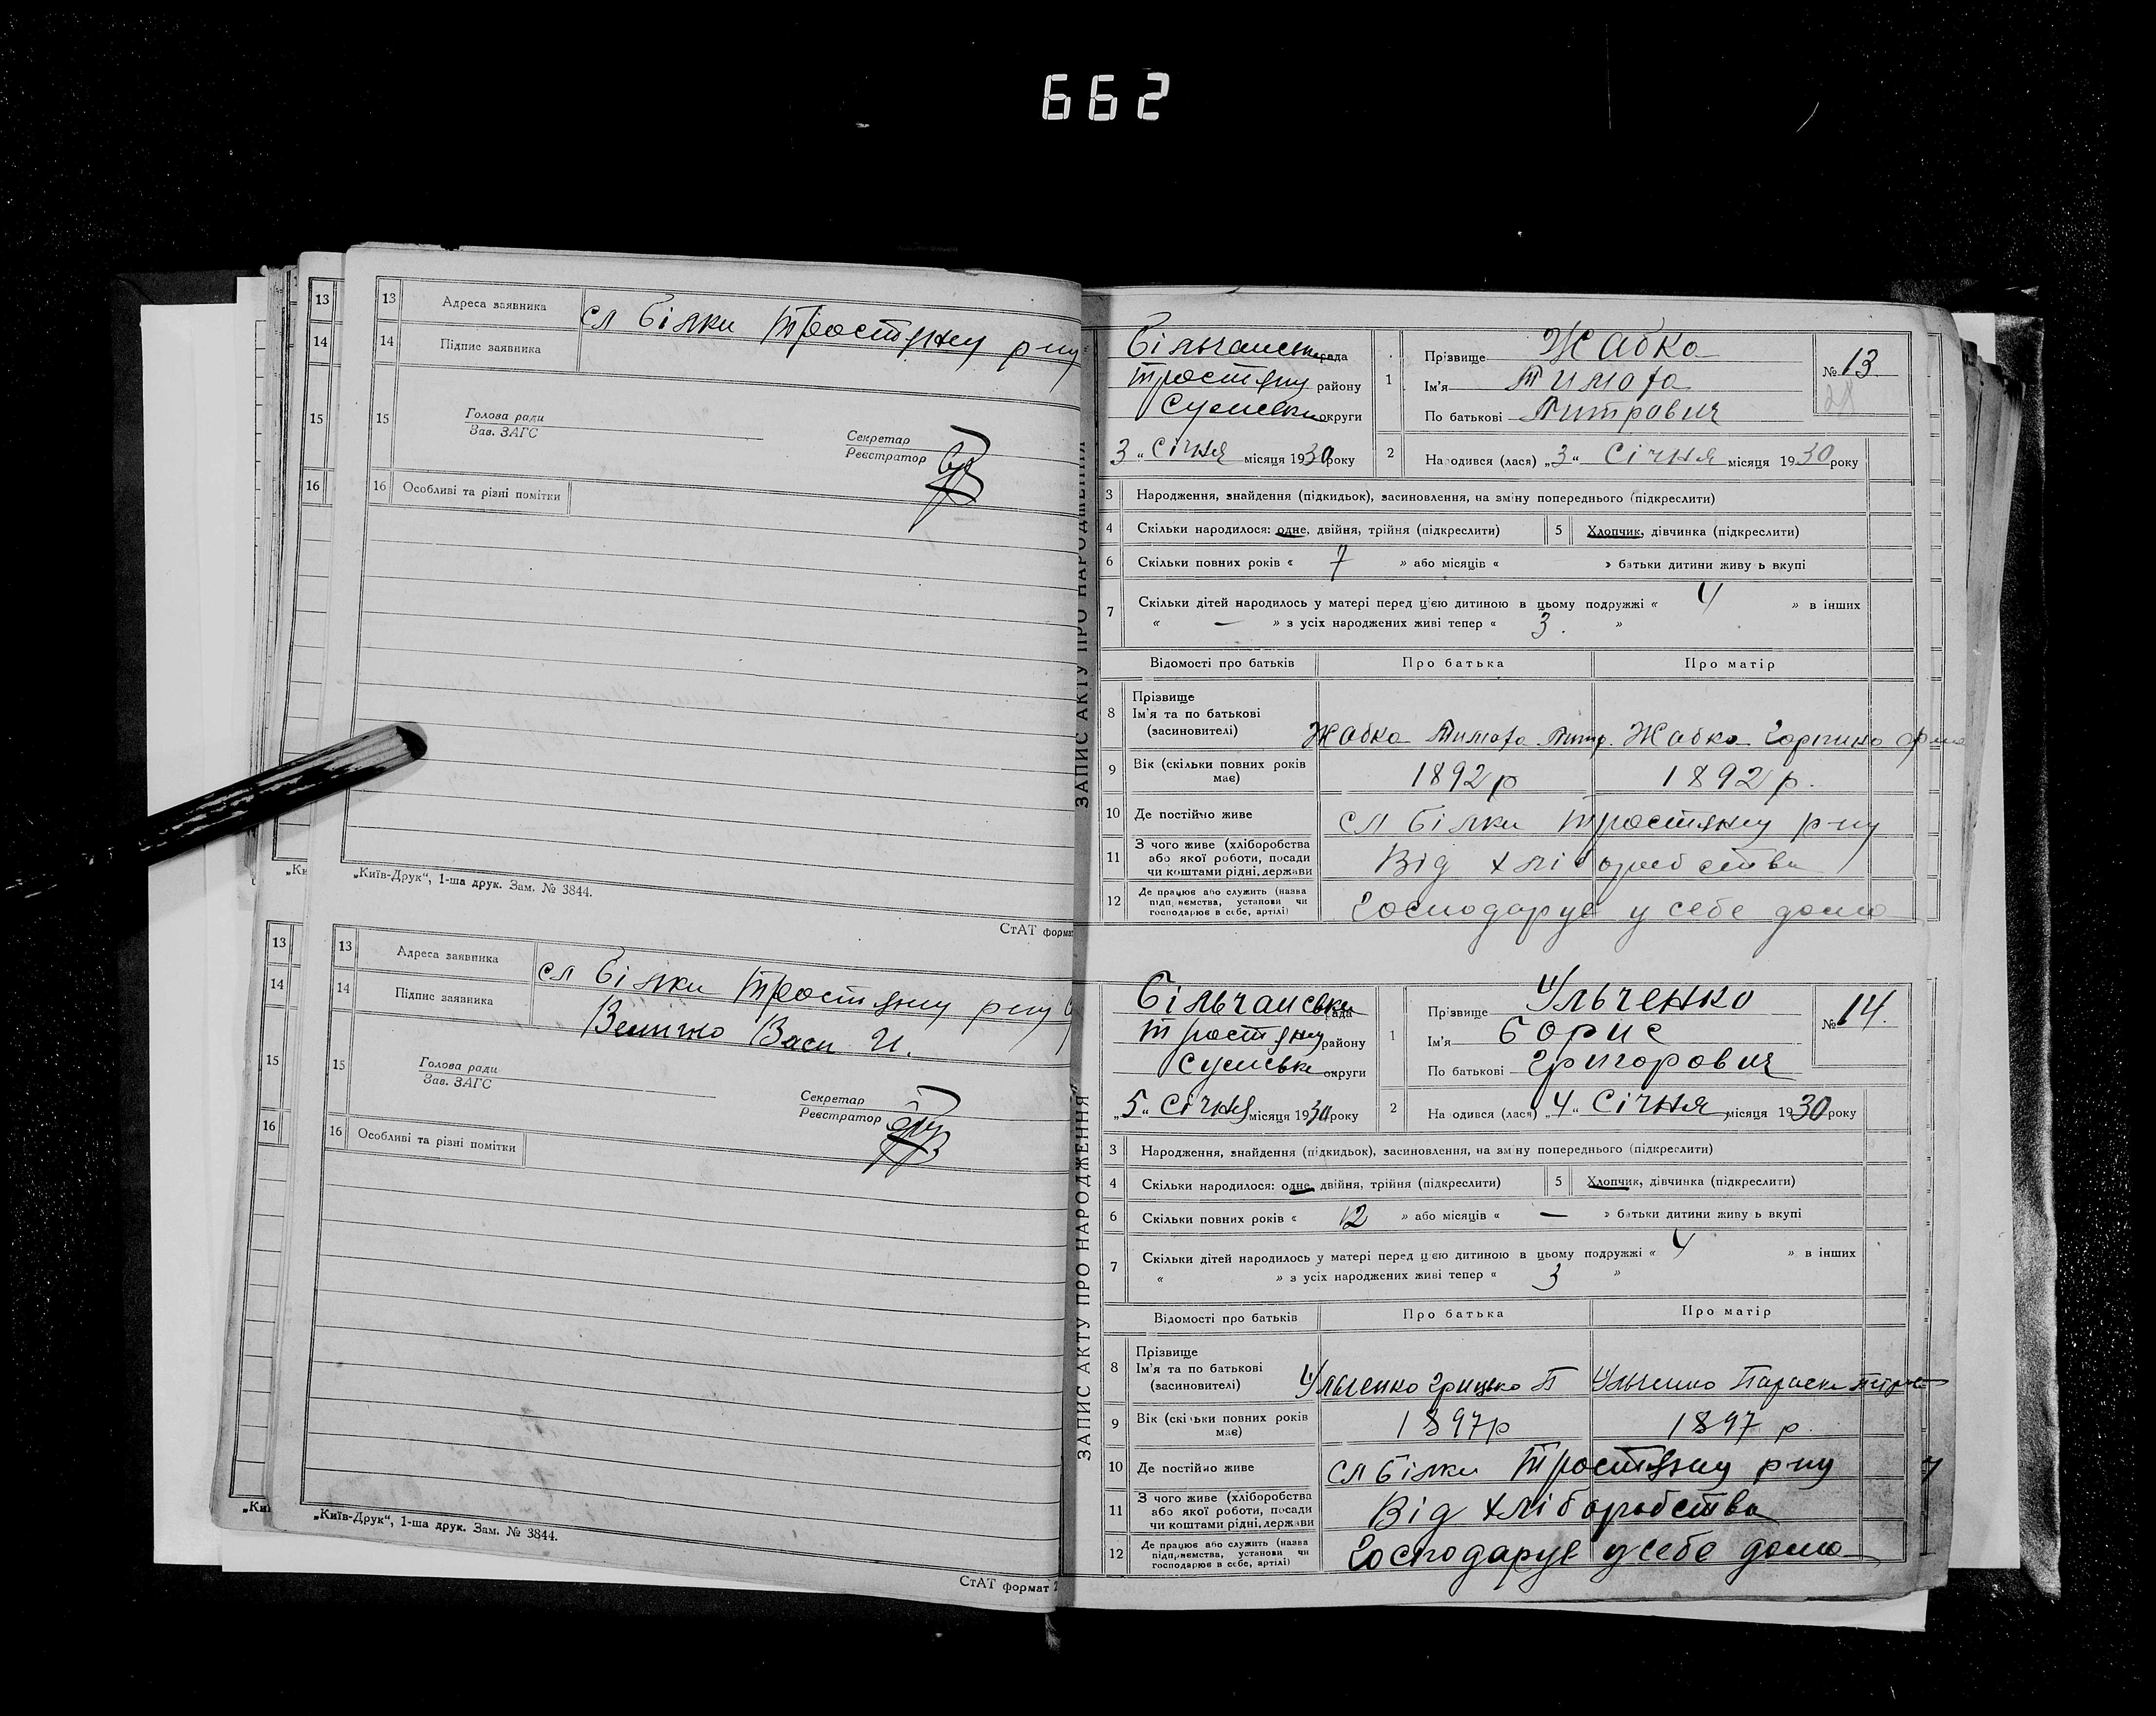 662
13 Адреса заявника сл Білки Тростянц р-ну
14 Підпис заявника
15 Голова ради
Зав. ЗАГС
Секретар
Реєстратор
16 Особливі та різні помітки
„Київ-Друк“, 1-ша друк. Зам. № 3844.
СтАТ формат
13 Адреса заявника сл Білки Тростянц р-ну
14 Підпис заявника Величко Васи И.
15 Голова ради
Зав. ЗАГС
Секретар
Реєстратор
16 Особливі та різні помітки
„Київ-Друк“, 1-ша друк. Зам. № 3844.
СтАТ формат 2
ЗАПИС АКТУ ПРО НАРОДЖЕННЯ
Більчанська рада
Тростянц району
Сумськ округи
3 „ Січня місяця 1930 року
1 Прізвище Жабко
Ім'я Тимофа
По батькові Митрович
№ 13
28
2 Народився (лася) „3“ Січня місяця 1930 року
3 Народження, знайдення (підкидьок), засиновлення, на зміну попереднього (підкреслити)
4 Скільки народилося: одне, двійня, трійня (підкреслити) 5 Хлопчик, дівчинка (підкреслити)
6 Скільки повних років « 7 » або місяців « » батьки дитини живуть вкупі
7 Скільки дітей народилось у матері перед цією дитиною в цьому подружжі « 4 » в інших
« — » з усіх народжених живі тепер « 3. »
Відомості про батьків Про батька Про матір
8 Прізвище
Ім'я та по батькові
(засиновителі) Жабко Тимофа Митр. Жабко Горпина
9 Вік (скільки повних років має) 1892 р 1892 р.
10 Де постійно живе сл Білки Тростянц р-ну
11 З чого живе (хліборобства або якої роботи, посади чи коштами рідні, держави Від хліборобства
12 Де працює або служить (назва підприємства, установи чи господарює в себе, артілі) Господарує у себе дома
ЗАПИС АКТУ ПРО НАРОДЖЕННЯ
Більчанська рада
Тростянц району
Сумськ округи
„5“ Січня місяця 1930 року
1 Прізвище Ульченко
Ім'я Борис
По батькові Григорович
№ 14.
2 Народився (лася) „4“ Січня місяця 1930 року
3 Народження, знайдення (підкидьок), засиновлення, на зміну попереднього (підкреслити)
4 Скільки народилося: одне, двійня, трійня (підкреслити) 5 Хлопчик, дівчинка (підкреслити)
6 Скільки повних років « 12 » або місяців « — » батьки дитини живуть вкупі
7 Скільки дітей народилось у матері перед цією дитиною в цьому подружжі « 4 » в інших
« » з усіх народжених живі тепер « 3 »
Відомості про батьків Про батька Про матір
8 Прізвище
Ім'я та по батькові
(засиновителі) Ульченко Грицько П Ульченко Параск
9 Вік (скільки повних років має) 1897 р 1897 р.
10 Де постійно живе сл Білки Тростянц р-ну
11 З чого живе (хліборобства або якої роботи, посади чи коштами рідні, держави Від хліборобства
12 Де працює або служить (назва підприємства, установи чи господарює в себе, артілі) Господарує у себе дома